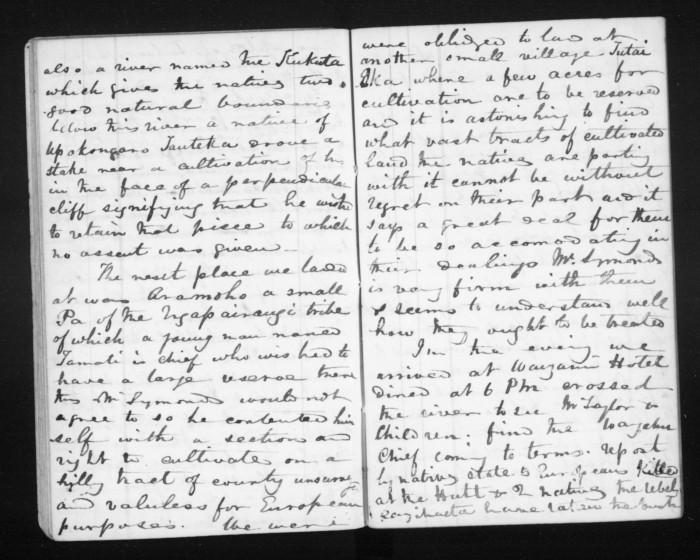 also a river named the Kukuta
which gives the natives two
good natural boundries
below this river a native of
Upokongaro Tauteka drove a
stake near a cultivation of his
in the face of a perpendicular
cliff signifying that he wished
to retain that piece to which
no assent was given
The next place we landed
at was Aramoho a small
Pa of the Ngapairangi tribe
of which a young man named
Tamati is chief who wished to
have a large reserve there
this Mr Symonds would not
agree to so he contented him
self with a section and
right to cultivate on a
hilly tract of country
and valueless for European
purposes. We were
were oblidged to land at
another small village Tutai
Eka where a few acres for
cultivation are to be reserved
and it is astonishing to find
what vast tracts of cultivated
land the natives are parting
with it cannot be without
regret on their part and it
says a great deal for them
to be so accomodating in
their dealings Mr Symonds
is very firm with them
& seems to understand well
how they ought to be treated
In the evening we
arrived at Hotel
dined at 6 PM crossed
the river to see Mr Taylor &
Children; find the
Chief coming to terms. report
by natives state 5 Europeans Killed
at the Hutt & 2 natives the rebels
have taken the